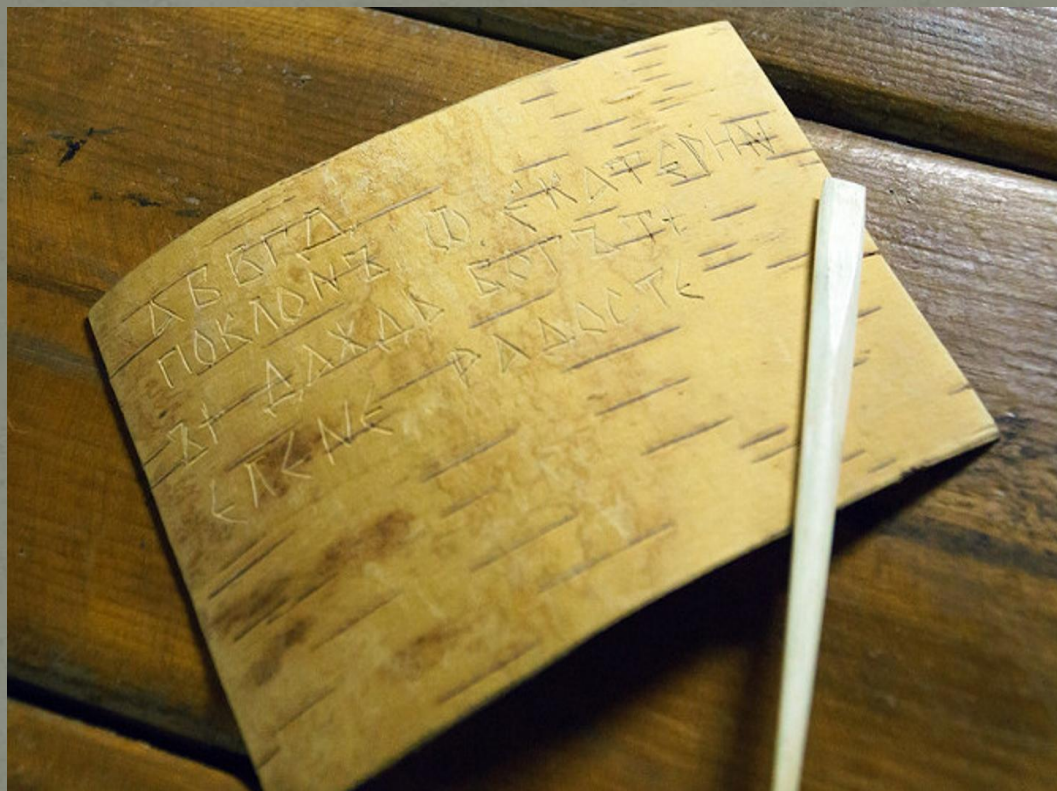 АБВГД
ПОКЛОНЪ Ѿ ЕКАТЕРИН
ЪІ ДАЖДЬ БОГ ЪІ
ЕЛЕНЕ РАДОСТЬ